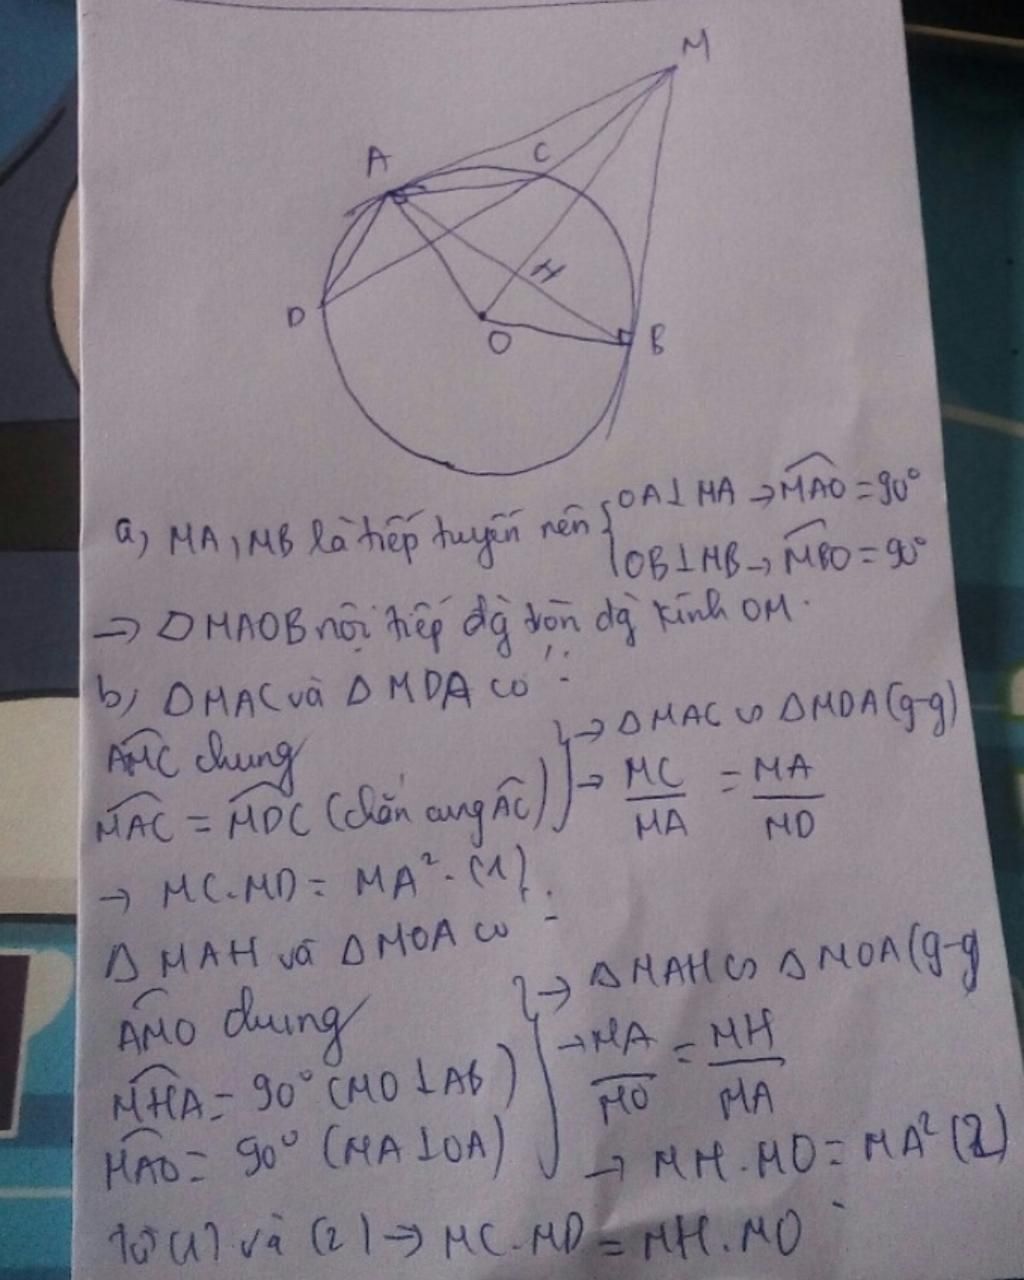 M
A
C
H
D
O
B
a, MA, MB là tiếp tuyến nên { OA ⊥ MA → \widehat{MAO} = 90°
OB ⊥ MB → \widehat{MBO} = 90°
=> △MAOB nội tiếp đg tròn đg kính OM.
b, △MAC và △MDA có :
\widehat{AMC} chung } → △MAC ∽ △MDA (g-g)
\widehat{MAC} = \widehat{MDC} (chắn cung \widehat{AC}) → \frac{MC}{MA} = \frac{MA}{MD}
→ MC.MD = MA². (1).
△MAH và △MOA có :
\widehat{AMO} chung } → △MAH ∽ △MOA (g-g
\widehat{MHA} = 90° (MO ⊥ AB) → \frac{MA}{MO} = \frac{MH}{MA}
\widehat{MAO} = 90° (MA ⊥ OA) → MH.MO = MA² (2)
Từ (1) và (2) → MC.MD = MH.MO